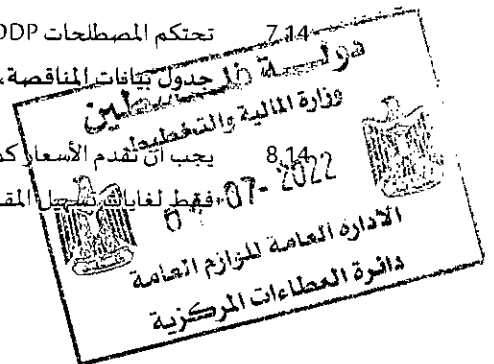 7.14 تحتكم المصطلحات DDP
جدول بيانات المناقصة،
8.14 يجب أن تقدم الأسعار كم
فقط لغايات تسهيل المقا
دولة فلسطين
وزارة المالية والتخطيط
07- 2022
الادارة العامة للوازم العامة
دائرة العطاءات المركزية